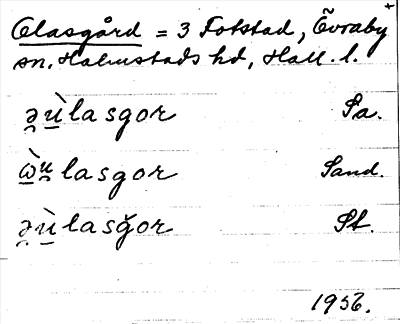 Olasgård = 3 Fotstad, Övraby
sn, Halmstads hd, Hall. l.
ə̯ṳ̀lasgor Sa.
ὼ̱u̯lasgor Sand.
ə̯ṳ̀lasğor St.
1956.